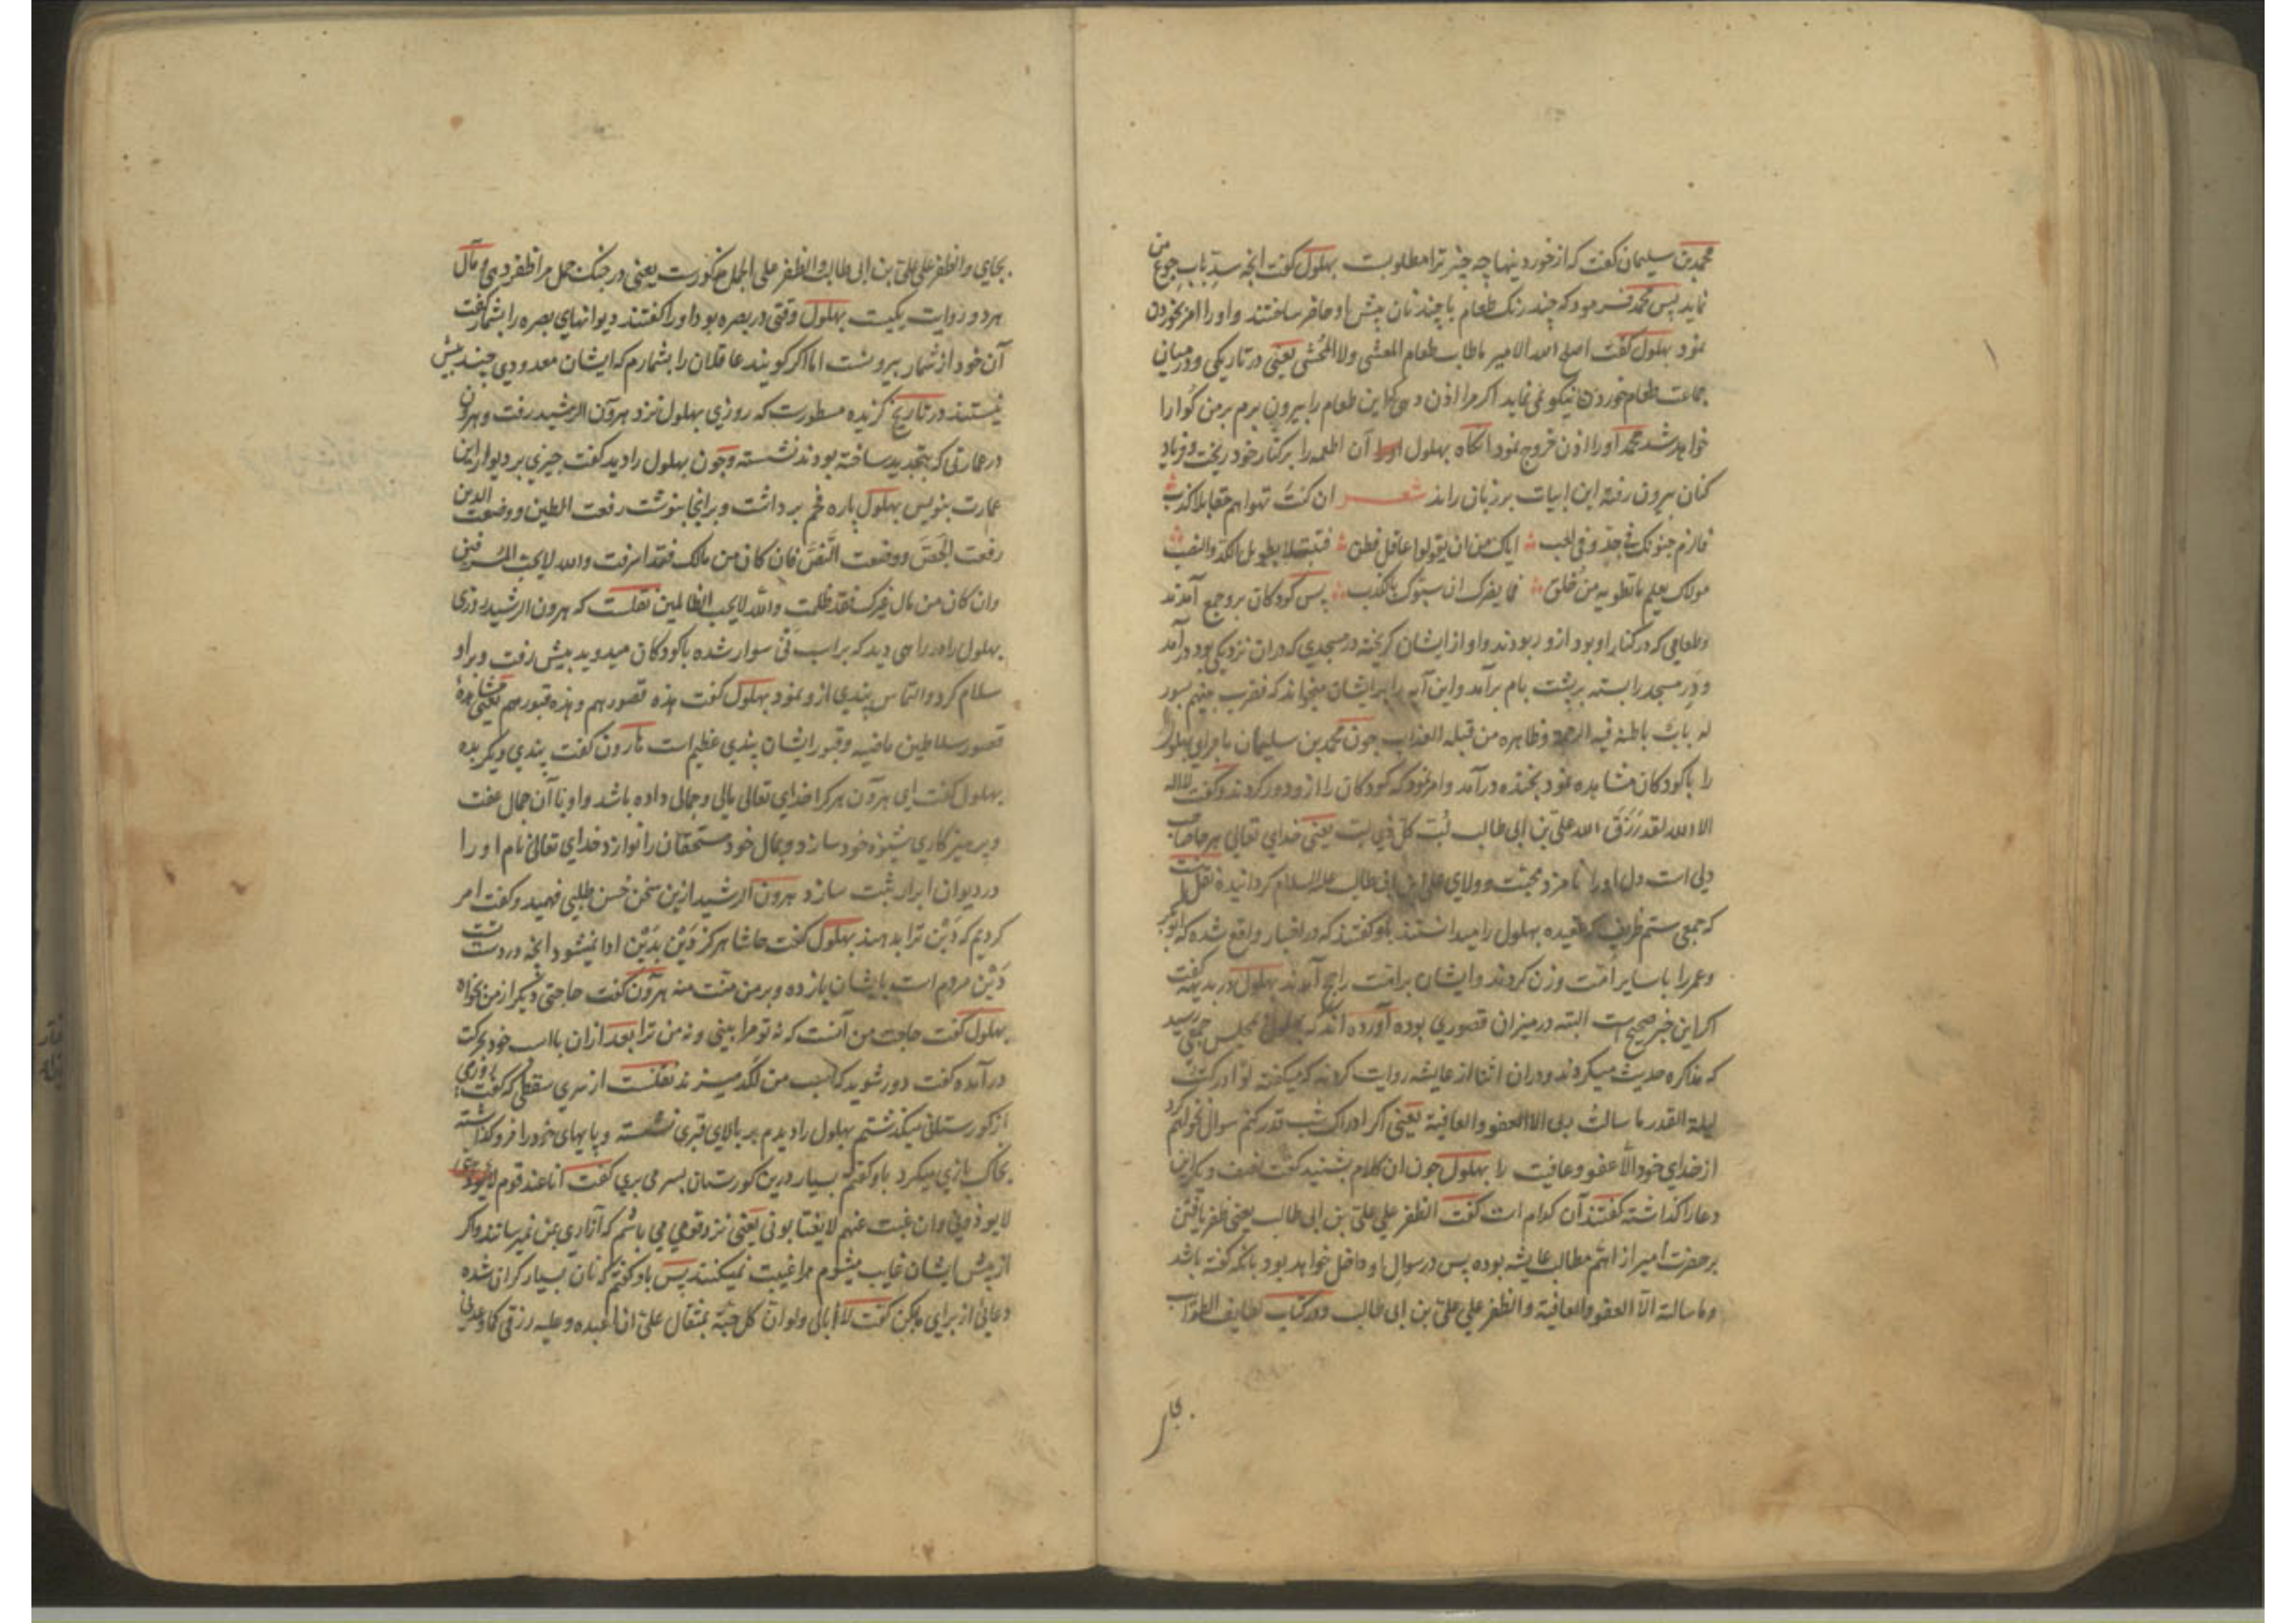 محمد بن سلیمان کفت که از خوردینها چه چیز ترا مطلوبست بهلول کفت انجه سدّ باب جوع من
نماید پس محمد فرمود که چند رنک طعام با چند نان پیش او حاضر ساختند و او را امر بخوردن
نمود بهلول کفت اصلح الله الامیر ماطاب طعام المعشی ولا المحشی یعنی در تاریکی و در میان
جماعت طعام خوردن نیکو نمی نماید اکر مرا اذن دهی که این طعام را بیرون برم بر من کوارا
خواهد شد محمد او را اذن خروج نمود انکاه بهلول آن اطعمه را بر کنار خود ریخت و فریاد
کنان بیرون رفته این ابیات بر زبان راند شعر ان کنت تهواهم حقا بلا کذب
فالزم جنونک فی جد و فی لعب ایاک من ان یقولوا عاقل فطن فتبتلا بطویل الکد والنصب
مولاک یعلم ماتطویه من خلق فما یضرک ان سبوک بالکذب پس کودکان برو جمع آمدند
وطعامی که در کنار او بود ازو ربودند واو از ایشان کریخته در مسجدی که دران نزدیکی بود درآمد
و در مسجد را بسته بر پشت بام برآمد و این آیه را بر ایشان میخواند که فضرب بینهم بسور
له باب باطنه فیه الرحمه وظاهره من قبله العذاب جون محمد بن سلیمان ماجرای بهلول
را با کودکان مشاهده نمود بخنده درآمد وامر نمود که کودکان را ازو دور کردند وکفت لا اله
الا الله لقد رَزَقَ الله علی بن ابی طالب لُبّ کلّ ذی لب یعنی خدای تعالی هر صاحب
دلی است دل او را نامزد محبّت وولای علی ابن ابی طالب علیه السلام کردانیده نقل است
که جمعی ستم ظریف که عقیده بهلول را میدانستند باو کفتند که در اخبار واقع شده که ابوبکر
وعمر را با سایر امّت وزن کردند وایشان بر امّت راجح آمدند بهلول در بدیهه کفت
اکر این خبر صحیح است البته در میزان قصوری بوده آورده اند که بهلول بمجلس جمعی رسید
که مذاکره حدیث میکردند ودران اثنا از عایشه روایت کردند که میکفته لو ادرکت
لیلة القدر ما سالت ربی الا العفو والعافیة یعنی اکر ادراک شب قدر کنم سوال نخواهم کرد
از خدای خود الّا عفو وعافیت را بهلول جون ان کلام بشنید کفت نصف دیکر این
دعا را کذاشته کفتند آن کدام است کفت الظفر علی علیّ بن ابی طالب یعنی ظفر یافتن
بر حضرت امیر از اهمّ مطالب عایشه بوده پس در سوال او داخل خواهد بود بانکه کفته باشد
وما سالته الّا العفو والعافیة والظفر علی علیّ بن ابی طالب ودر کتاب لطایف الطوایف
بجای
بجای والظفر علی علیّ بن ابی طالب والظفر علی الجمل مذکورست یعنی در جنک جمل مرا ظفر دهی ومآل
هر دو روایت یکیست بهلول وقتی در بصره بود او را کفتند دیوانهای بصره را بشمار کفت
آن خود از شمار بیرونست اما اکر کویند عاقلان را بشمارم که ایشان معدودی چند بیش
نیستند در تاریخ کزیده مسطورست که روزی بهلول نزد هرون الرشید رفت وهرون
در عمارتی که بتجدید ساخته بودند نشسته وجون بهلول را دید کفت جیزی بر دیوار این
عمارت بنویس بهلول پاره فحم برداشت وبرانجا بنوشت رفعت الطین ووضعت الدین
رفعت الجَصّ ووضعت النّصّ فان کان من مالک فقد اسرفت والله لا یحب المسرفین
وان کان من مال غیرک فقد ظلمت والله لا یحب الظالمین نقلست که هرون الرشید روزی
بهلول را در راهی دید که بر اسب نی سوار شده با کودکان میدوید پیش رفت وبر او
سلام کرد والتماس پندی ازو نمود بهلول کفت هذه قصورهم وهذه قبورهم یعنی مشاهدهٔ
قصور سلاطین ماضیه وقبور ایشان پندی عظیم است هارون کفت پندی دیکر بده
بهلول کفت ای هرون هر کرا خدای تعالی مالی وجمالی داده باشد واو با آن جمال عفت
وپرهیزکاری شیوهٔ خود سازد وبمال خود مستحقان را نوازد خدای تعالی نام او را
در دیوان ابرار ثبت سازد هرون الرشید ازین سخن حُسن طلبی فهمید وکفت امر
کردیم که دَیْن ترا بدهند بهلول کفت حاشا هرکز دَیْن بدَیْن ادا نمیشود انجه در دست تست
دَیْن مردم است بایشان باز ده وبر من منت منه هرون کفت حاجتی دیکر از من بخواه
بهلول کفت حاجت من آنست که نه تو مرا بینی ونه من ترا بعد ازان با اسب خود بحرکت
درآمده کفت دور شوید که اسب من لکد میزند نقلست از سری سقطی که کفت روزی
از کورستانی میکذشتم بهلول را دیدم بر بالای قبری نشسته وپایهای خود را فرو کذاشته
بخاک بازی میکرد باو کفتم بسیار درین کورستان بسر می بری کفت انا عند قوم
لا یوذوننی وان غبت عنهم لا یغتابونی یعنی نزد قومی می باشم که آزاری بمن نمیرسانند واکر
از پیش ایشان غایب میشوم مرا غیبت نمیکنند پس باو کفتم که نان بسیار کران شده
دعائی از برای ما بکن کفت لا ابالی ولو انّ کل حبّة بمثقال علیّ ان اعبده وعلیه رزقی کما وعدنی